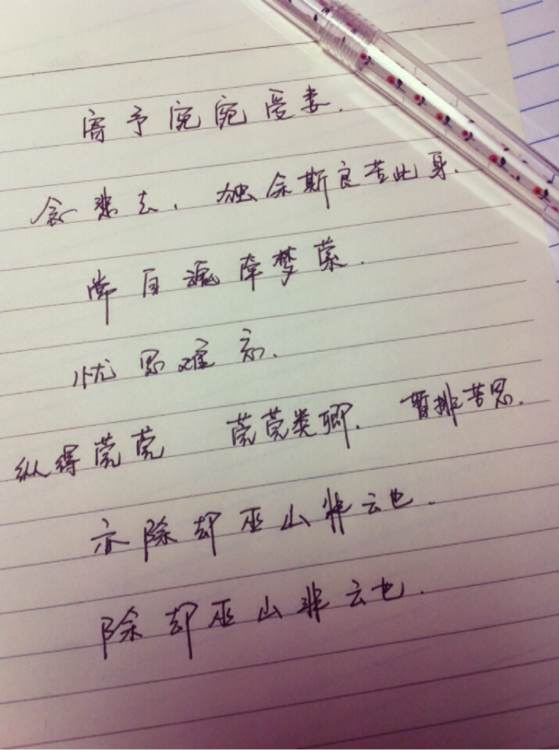 寄予宛宛爱妻.
念悲去,独余斯良苦此身.
常自魂牵梦萦.
忧思难忘.
纵得莞莞 莞莞类卿.暂排苦思.
亦除却巫山非云也.
除却巫山非云也.